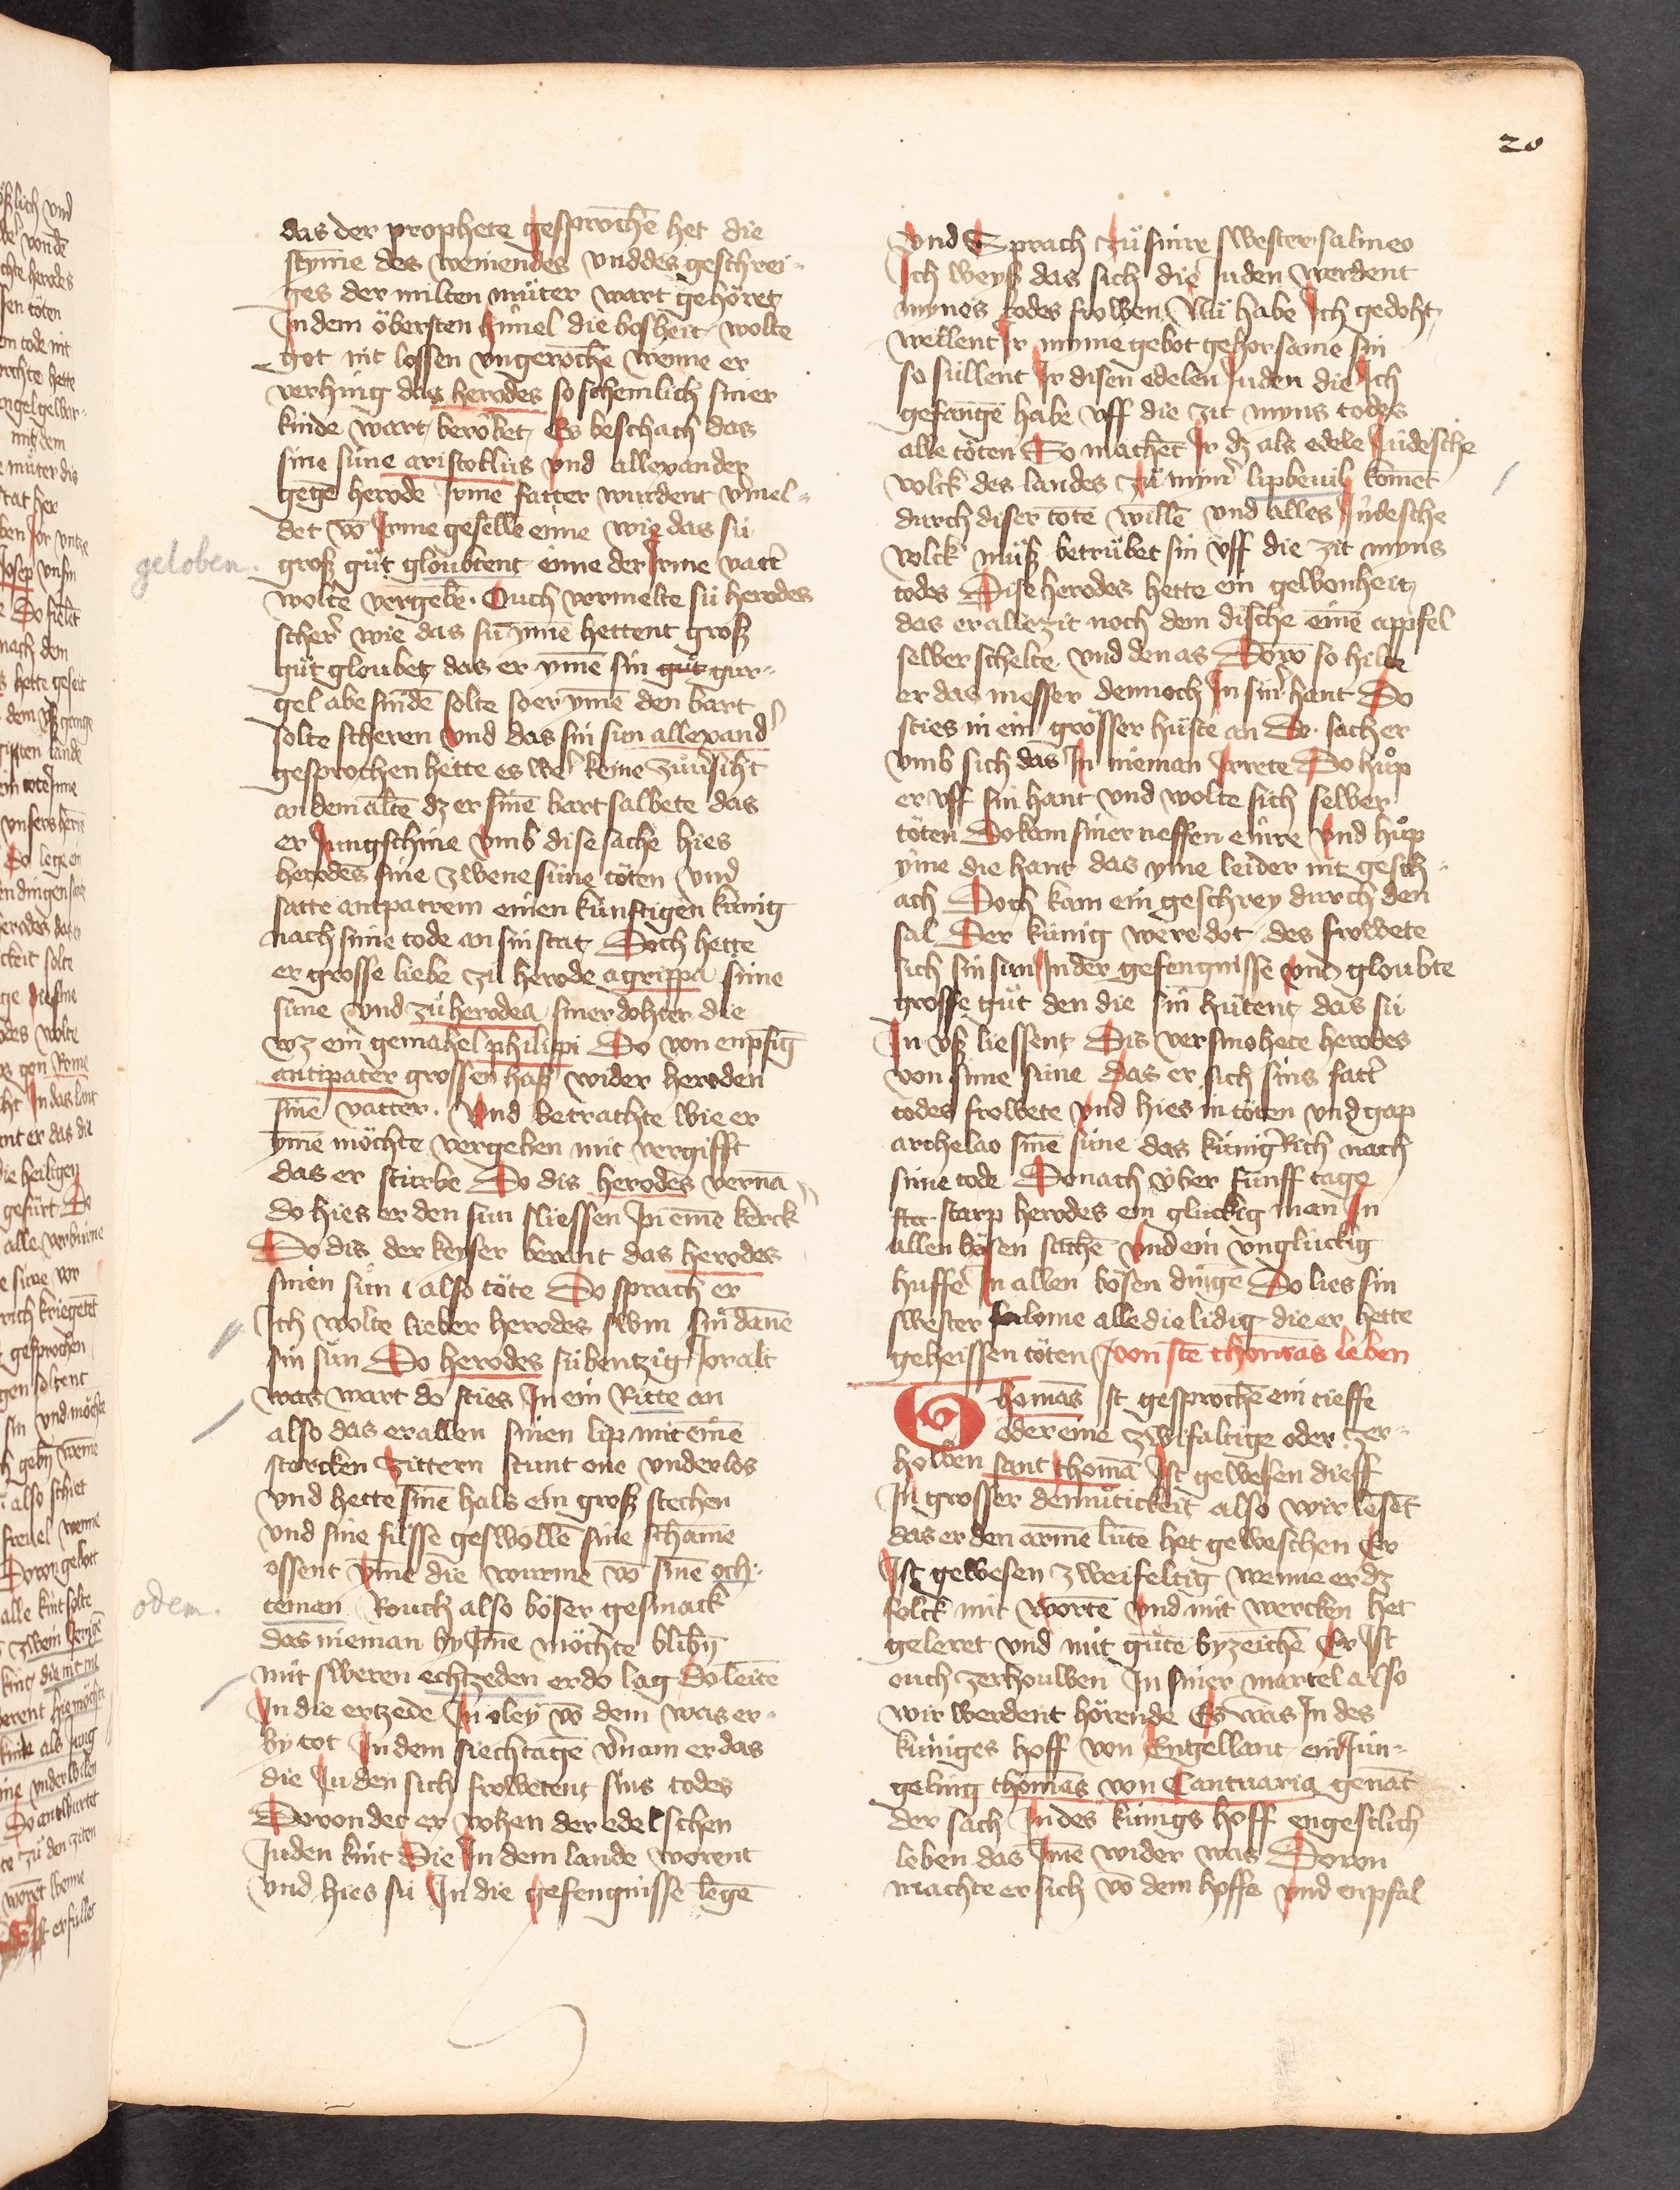 20
das der prophete gesprochē het die
stȳme des weinendes vnd des geschrei-
ges der milten můter wart gehöret
In dem öbersten hīmel die bosheit wolte
got nit lossen vngerochē wenne er
verhing das herodes so schemlich siner
kinde wart beröbet Es beschach das
sine süne aristoklüs vnd allexander
gegē herode Irme fatter wurdent v̄mel-
det vō Irme geselle eime wie das sü
groß gůt gloubtent eime der Irme vatt̄
woltē vergebē. Ouch vermelte sü herodes
scher̄ wie das sü ymē hettent groß
gůt gloubet das er ymē sin gůt gur-
gel abe sindē solte so er ymē den bart
solte scheren vnd das sin sun allexand
gesprochen hette es wer keine zův̄siht
an dem altē dz er sinē bart salbete das
er Jung schine vmb dise sache hies
herodes sine zwene süne töten vnd
satte antpatrem einen künftigen künig
nach sime tode an sin stat Doch hette
er grosse liebe zů herode agrippa sime
sune vnd zů herodea siner dohter die
wz ein gemahel philippi Do von enpfīg
antipater grossen haß wider heroden
sinē vatter. Vnd betrachte wie er
ymē möchte vergeben mit vergifft
das er sturbe Do dis herodes vernā
do hies er den sun sliessen In eimē kerck
Do dis der keyser verant das herodes
sinen sůn also töte Do sprach er
Ich wolte lieber herodes swin sin dānē
sin sůn Do herodes sübentzig Jor alt
was wart do sties In ein Ritte an
also das er allen sinen lip mit eimē
starcken zittern stunt one vnderlos
vnd hette sinē hals ein groß stechen
vnd sine füsse geswollē sine schamē
ossent ymē die wurme vō sinē och.
teman Rouch also böser gesmack
das nieman by Imē möchte blibn̄
mit sweren echtzeden er do lag Do leitē
In die ertzede In oley vō dem was er
by tot In dem siechtagē v̄nam er das
die Juden sich frowetent sins todes
Dovon det er vohen der edelschen
Juden kint Die In dem lande worent
vnd hies sü In die gefengnisse legē
vnd Sprach zů sinre swester salmeo
Ich weyß das sich die Juden werdent
mynes todes frowen Nů habe Ich gedoht
wellent Ir myme gebot gehorsame sin
so süllent Ir disen edelen Juden die Ich
gefangē habe vff die zit myns todes
alle töten So machēt Ir dz als edele Jüdesche
volck des landes zů mynr̄ lipbeuil komēt
durch diser totē willē vnd alles Jüdesche
volck můß betrübet sin vff die zit myns
todes Dise herodes hette ein gewonheit
das er alle zit noch dem dische einē appfel
selber schelte vnd den as Dorō so hilte
er das messer dennoch In sinr̄ hant Do
sties in ein grösser hůste an Do sach er
vmb sich das In nieman Irrete Do hůp
er vff sin hant vnd wolte sich selber
töten Do kam siner neffen einre vnd hůp
yme die hant das yme leider nit gesch-
ach Doch kam ein geschrey durch den
sal Der künig were dot des frowete
sich sin sun In der gefengnisse vnd gloubte
grosse gůt den die sin hütent das sü
In vß liessent Dis versmohete herodes
von sime sune das er sich sins fatt̄
todes frowete vnd hies in töten vnd gap
archelao sinē süne das künigrich nach
sime tode Donach über fünff tage
starp herodes ein gluckig man In
allen bösen sachē vnd ein vngluckig
huffer̄ In allen bösen dingē Do lies sin
swester salome alle die lidig die er hette
geheissen töten Von stē thomas leben
Thomas Ist gesprochē ein tieffe
oder eine zwifaltige oder zer-
howen sant thomā Ist gewesen dieff
In grosser demůtickeit also wir lesēt
das er den armē lutē het geweschen Er
Ist gewesen zweifeltig wenne er dz
folck mit wortē vnd mit wercken het
geleret vnd mit gůtē byzeichē Er Ist
ouch zerhouwen In siner martel also
wir werdent hörende Es was In des
kuniges hoff von Engellant ein Jün-
geling thomas von Cantuaria genāt
der sach In des kunigs hoff engestlich
leben das Imē wider was Doron
machte er sich vō dem hoffe vnd enpfal
geloben.
odem.